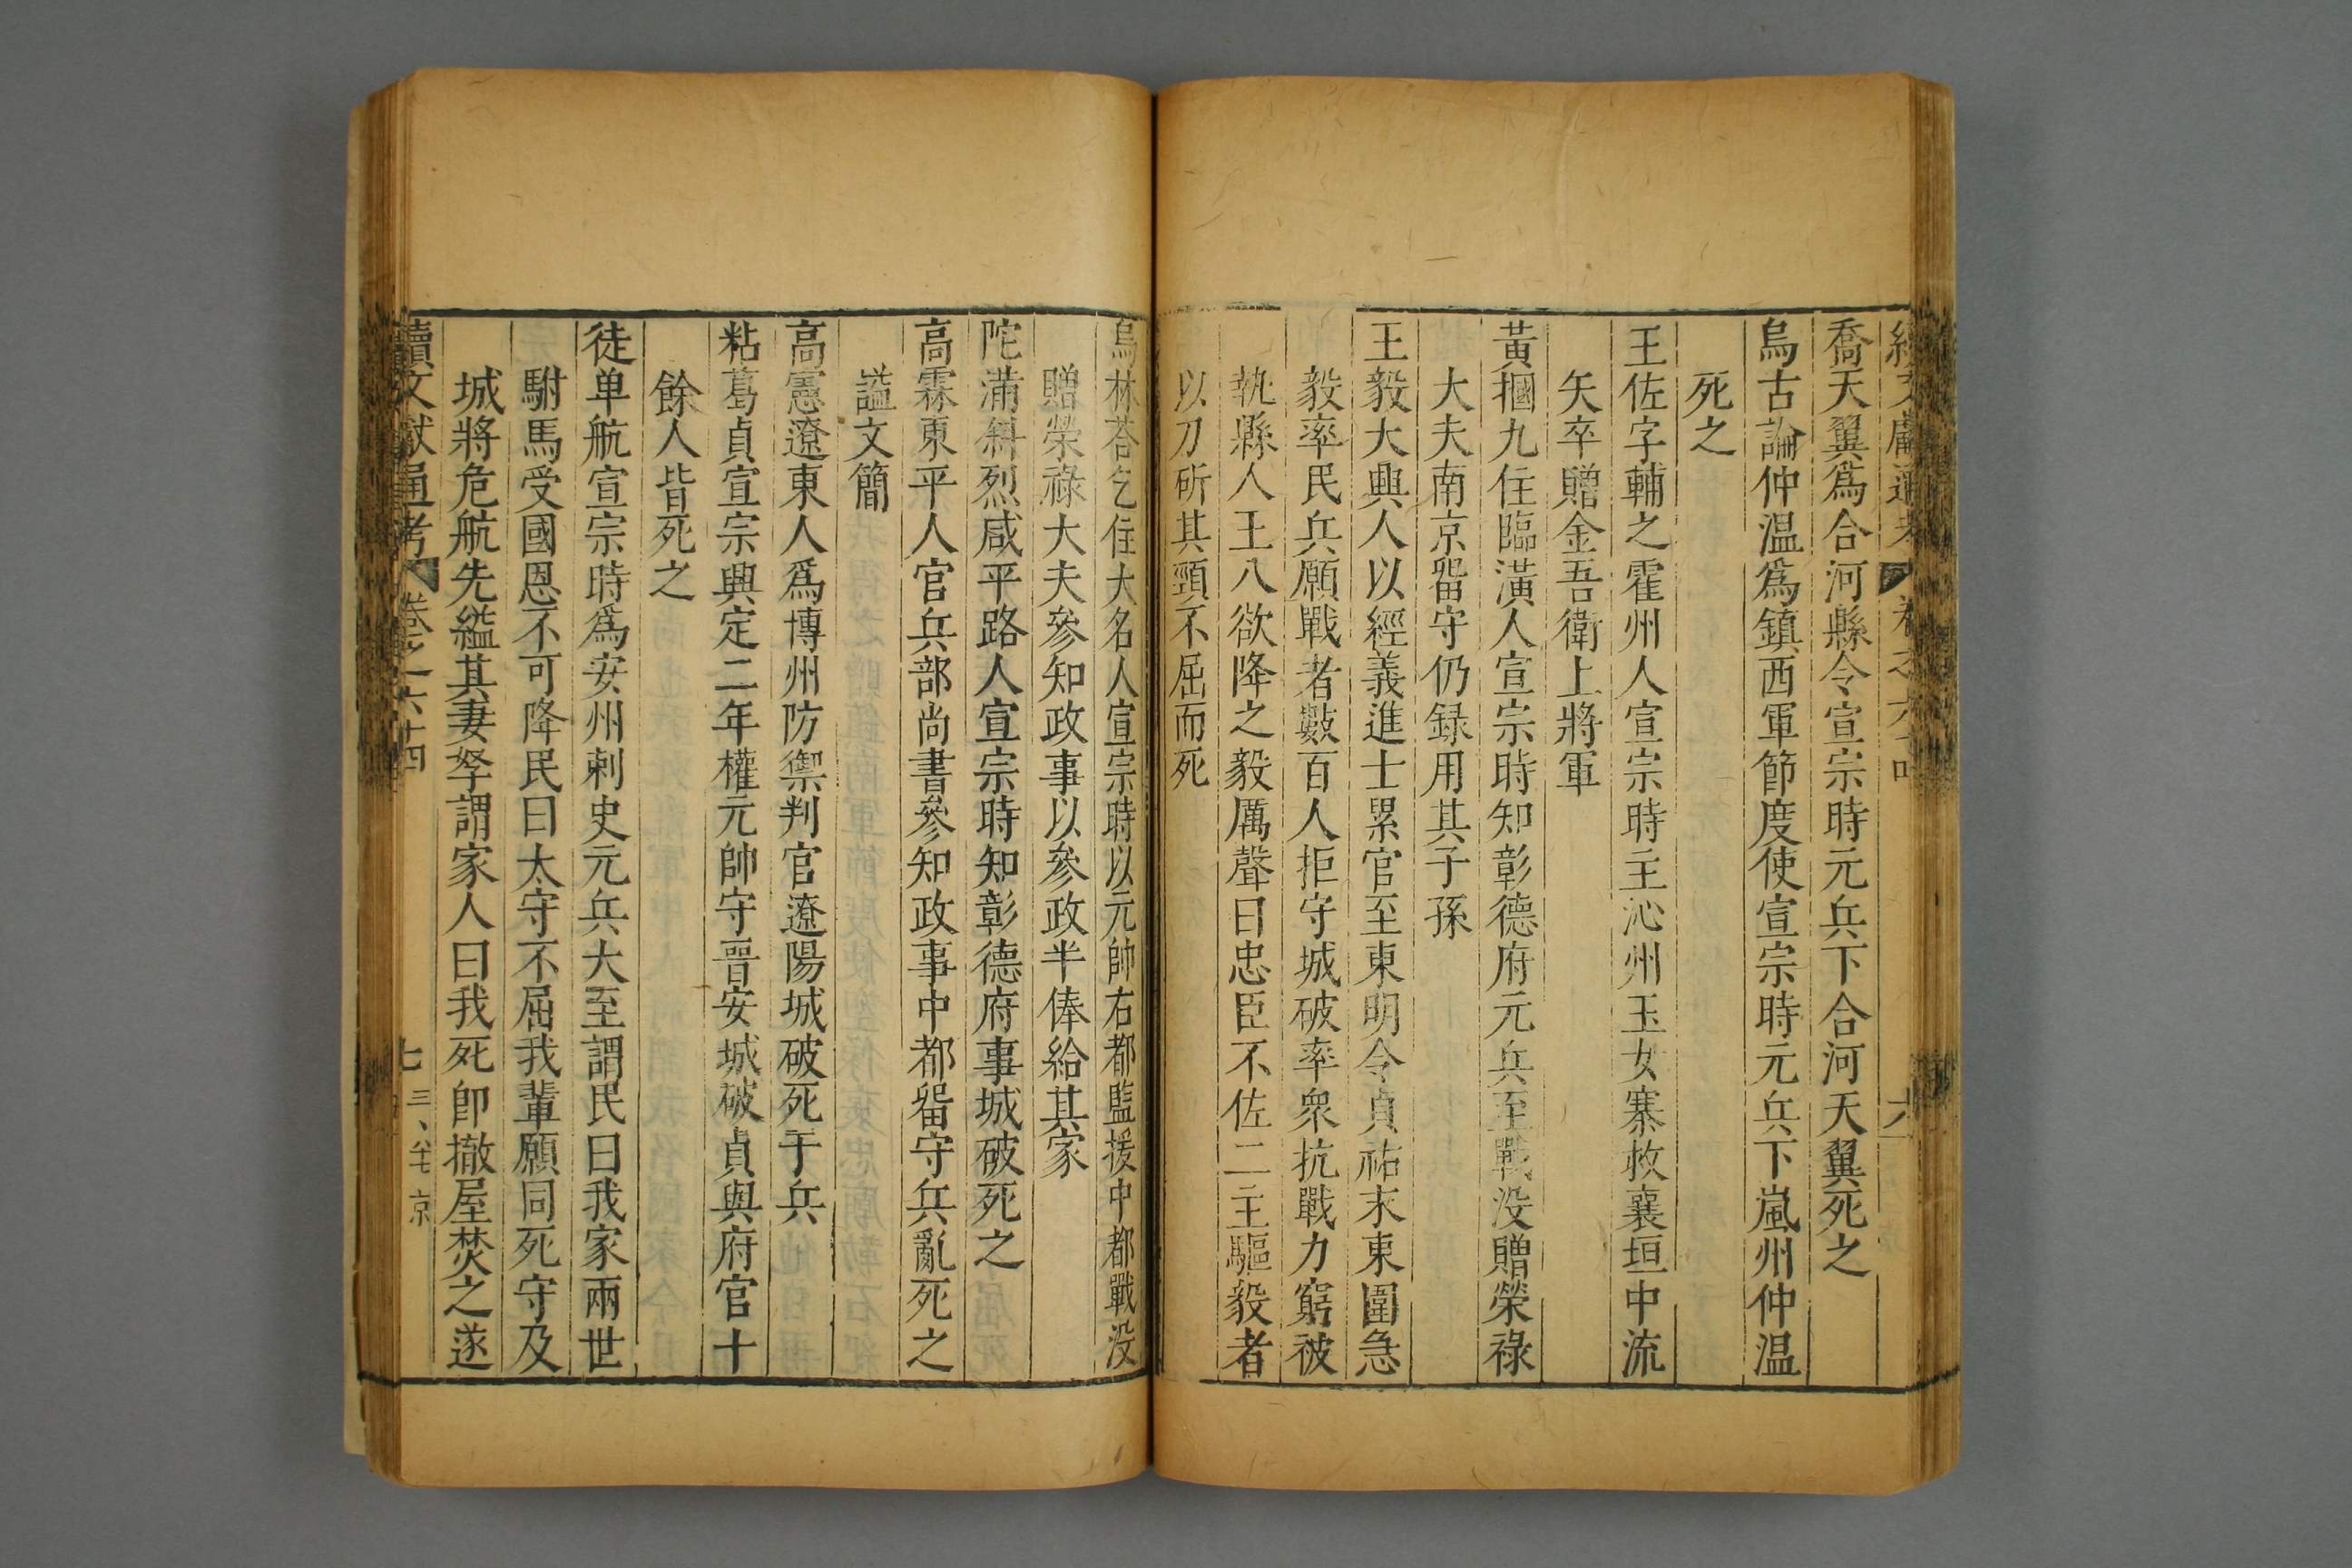 喬天翼爲合河縣令宣宗時元兵下合河天翼死之
烏古論仲温爲鎮西軍節度使宣宗時元兵下嵐州仲温
死之
王佐字輔之霍州人宣宗時主沁州玉女寨救襄垣中流
矢卒贈金吾衛上將軍
黃摑九住臨潢人宣宗時知彰德府元兵至戰没贈榮祿
大夫南京畱守仍録用其子孫
王毅大興人以經義進士累官至東明令貞祐末東圍急
毅率民兵願戰者數百人拒守城破率衆抗戰力窮被
執縣人王八欲降之毅厲聲曰忠臣不佐二主驅毅者
以刀斫其頸不屈而死
烏林荅乞住大名人宣宗時以元帥右都監援中都戰没
贈榮祿大夫參知政事以參政半俸給其家
陀滿斜烈咸平路人宣宗時知彰德府事城破死之
高霖東平人官兵部尚書參知政事中都畱守兵亂死之
謚文簡
高憲遼東人爲博州防禦判官遼陽城破死于兵
粘葛貞宣宗興定二年權元帥守晉安城破貞與府官十
餘人皆死之
徒单航宣宗時爲安州刺史元兵大至謂民曰我家兩世
駙馬受國恩不可降民曰太守不屈我輩願同死守及
城將危航先縊其妻孥謂家人曰我死卽撤屋焚之遂
續文獻通考 卷之六十四 七 三、 京